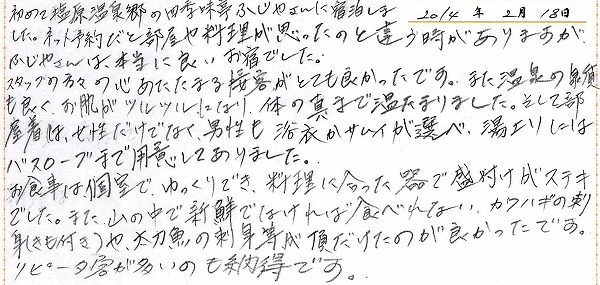 初めて塩原温泉郷の四季味亭ふじやさんに宿泊しま
2014年 2月 18日
した。ネット予約だと部屋や料理が思ったのと違う時がありますが、
ふじやさんは、本当に良いお宿でした。
スタッフの方々の心あたたまる接客がとても良かったです。また温泉の泉質
も良く、お肌がツルツルになり、体の真まで温まりました。そして部
屋着は、女性だけでなく、男性も浴衣かサムイが選べ、湯上りには
バスローブまで用意してありました。
お食事は個室で、ゆっくりでき、料理に合った器で盛付けがステキ
でした。また、山の中で新鮮でなければ食べれない、カワハギの刺
身(きも付き)や、太刀魚の刺身等が頂だけたのが良かったです。
リピータ客が多いのも納得です。